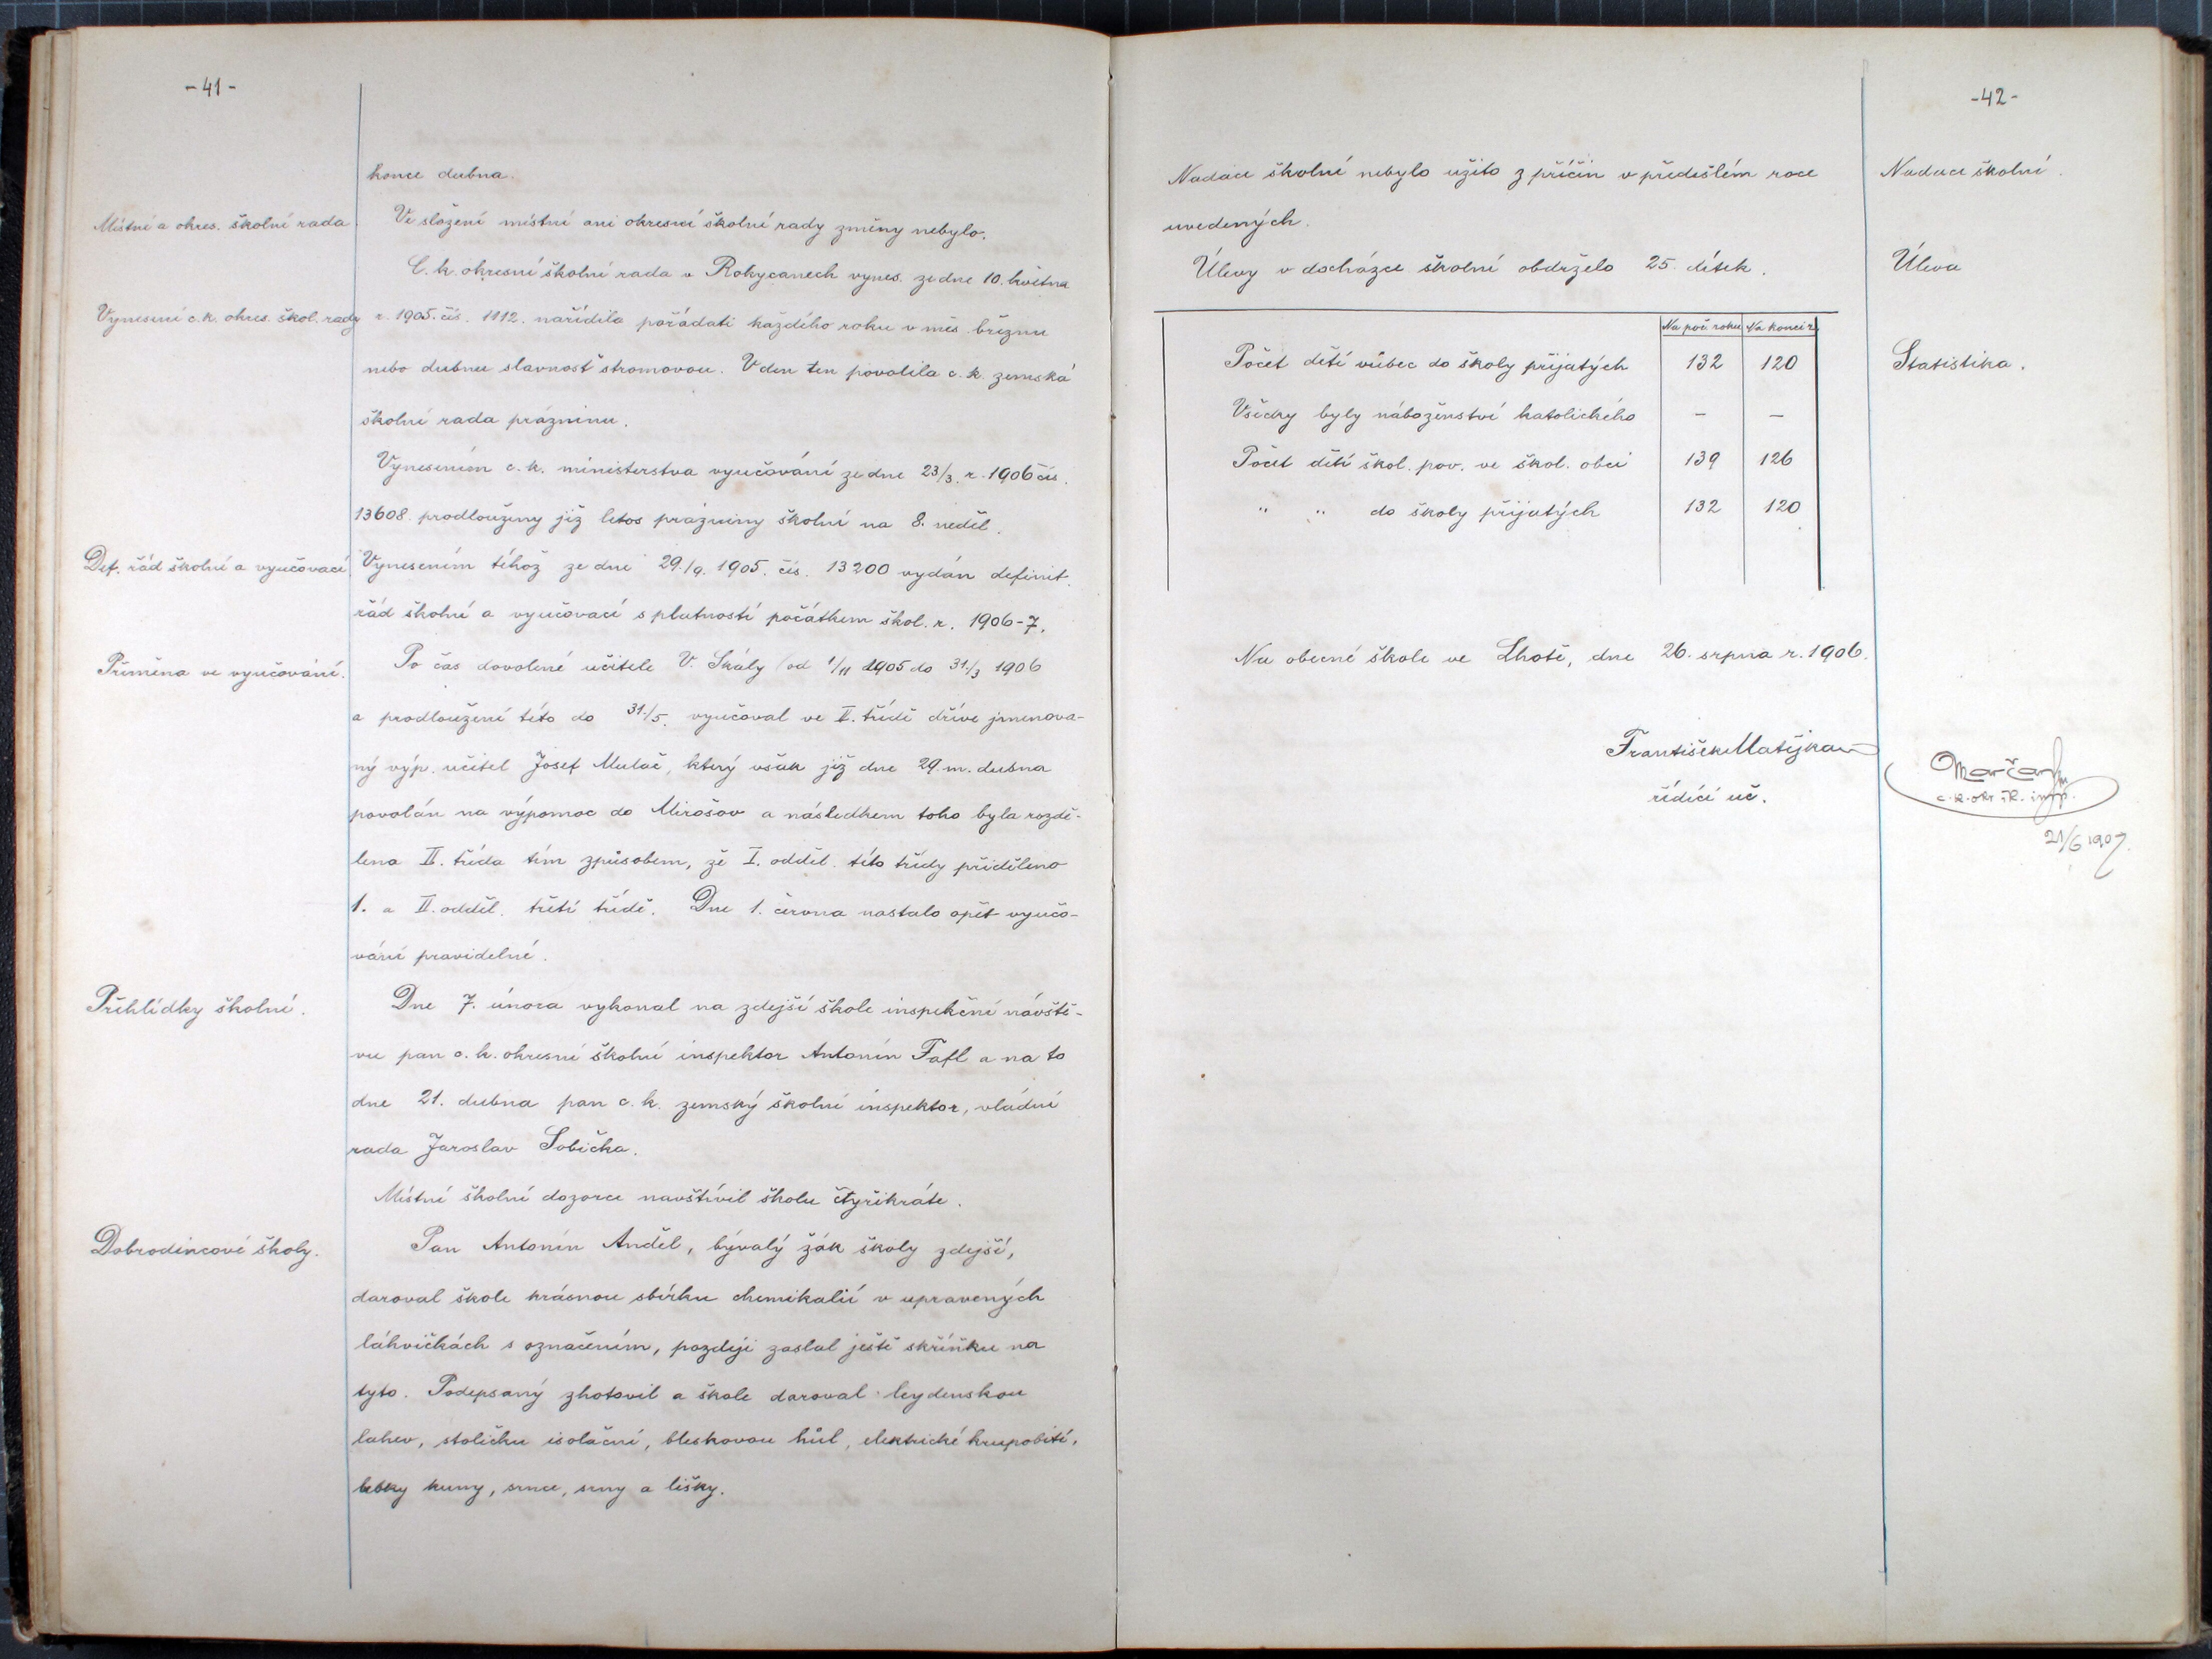 - 41 -
konce dubna.
Místní a okres. školní rada.
Ve složení místní ani okresní školní rady změny nebylo.
C. k. okresní školní rada v Rokycanech vynes. ze dne 10. května
Vynesení c. k. okres. škol. rady
r. 1905. čís. 1112. nařídila pořádati každého roku v měs. březnu
nebo dubnu slavnosť stromovou. V den ten povolila c. k. zemská
školní rada prázninu.
Vynesením c. k. ministerstva vyučování ze dne 23/3. r. 1906 čís.
13608. prodlouženy již letos prázniny školní na 8. neděl.
Def. řád školní a vyučovací
Vynesením téhož ze dne 29./9. 1905. čís. 13200 vydán definit.
řád školní a vyučovací s platností počátkem škol. r. 1906-7.
Přeměna ve vyučování.
Po čas dovolené učitele V. Skály (od 1/11 1905 do 31./3 1906
a prodloužení této do 31./5. vyučoval ve II. třídě dříve jmenova-
ný výp. učitel Josef Mulač, který však již dne 29. m. dubna
povolán na výpomoc do Mirošov a následkem toho byla rozdě-
lena II. třída tím způsobem, že I. odděl. této třídy přiděleno
1. a II. odděl. třetí třídě. Dne 1. června nastalo opět vyučo-
vání pravidelné.
Přehlídky školní.
Dne 7. února vykonal na zdejší škole inspekční návště-
vu pan c. k. okresní školní inspektor Antonín Fafl a na to
dne 21. dubna pan c. k. zemský školní inspektor, vládní
rada Jaroslav Sobička.
Místní školní dozorce navštívil školu čtyřikráte.
Dobrodincové školy.
Pan Antonín Anděl, bývalý žák školy zdejší,
daroval škole krásnou sbírku chemikalií v upravených
láhvičkách s označením, později zaslal ještě skříňku na
tyto. Podepsaný zhotovil a škole daroval leydenskou
lahev, stoličku isolační, bleskovou hůl, elektrické krupobití,
lebky kuny, srnce, srny a lišky.
- 42 -
Nadace školní nebylo užito z příčin v předešlém roce
Nadace školní.
uvedených.
Úlevy v docházce školní obdrželo 25. dítek.
Úleva
Na poč. roku Na konci r.
Počet dětí vůbec do školy přijatých 132 120
Statistika.
Všecky byly náboženství katolického – –
Počet dětí škol. pov. ve škol. obci 139 126
" " do školy přijatých 132 120
Na obecné škole ve Lhotě, dne 26. srpna r. 1906.
František Matějka
řídící uč.
c. k. okr. šk. insp.
21/6 1907.